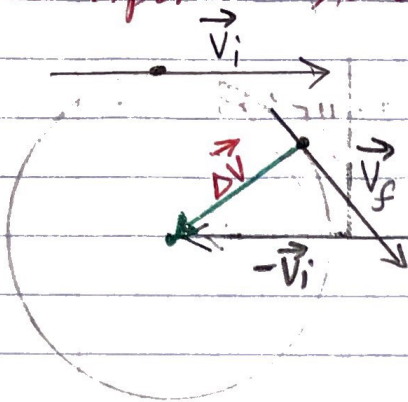 V⃗i
ΔV⃗
V⃗f
-V⃗i